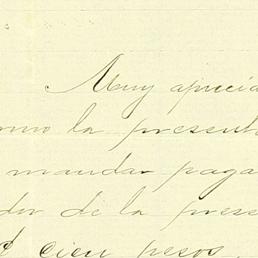 Muy aprecia
omo la presente
mandar paga
dor de la prese
cien pesos